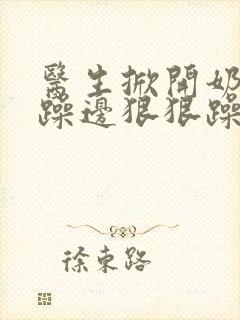 醫生掀開奶
躁邊狠狠躁
徐東路